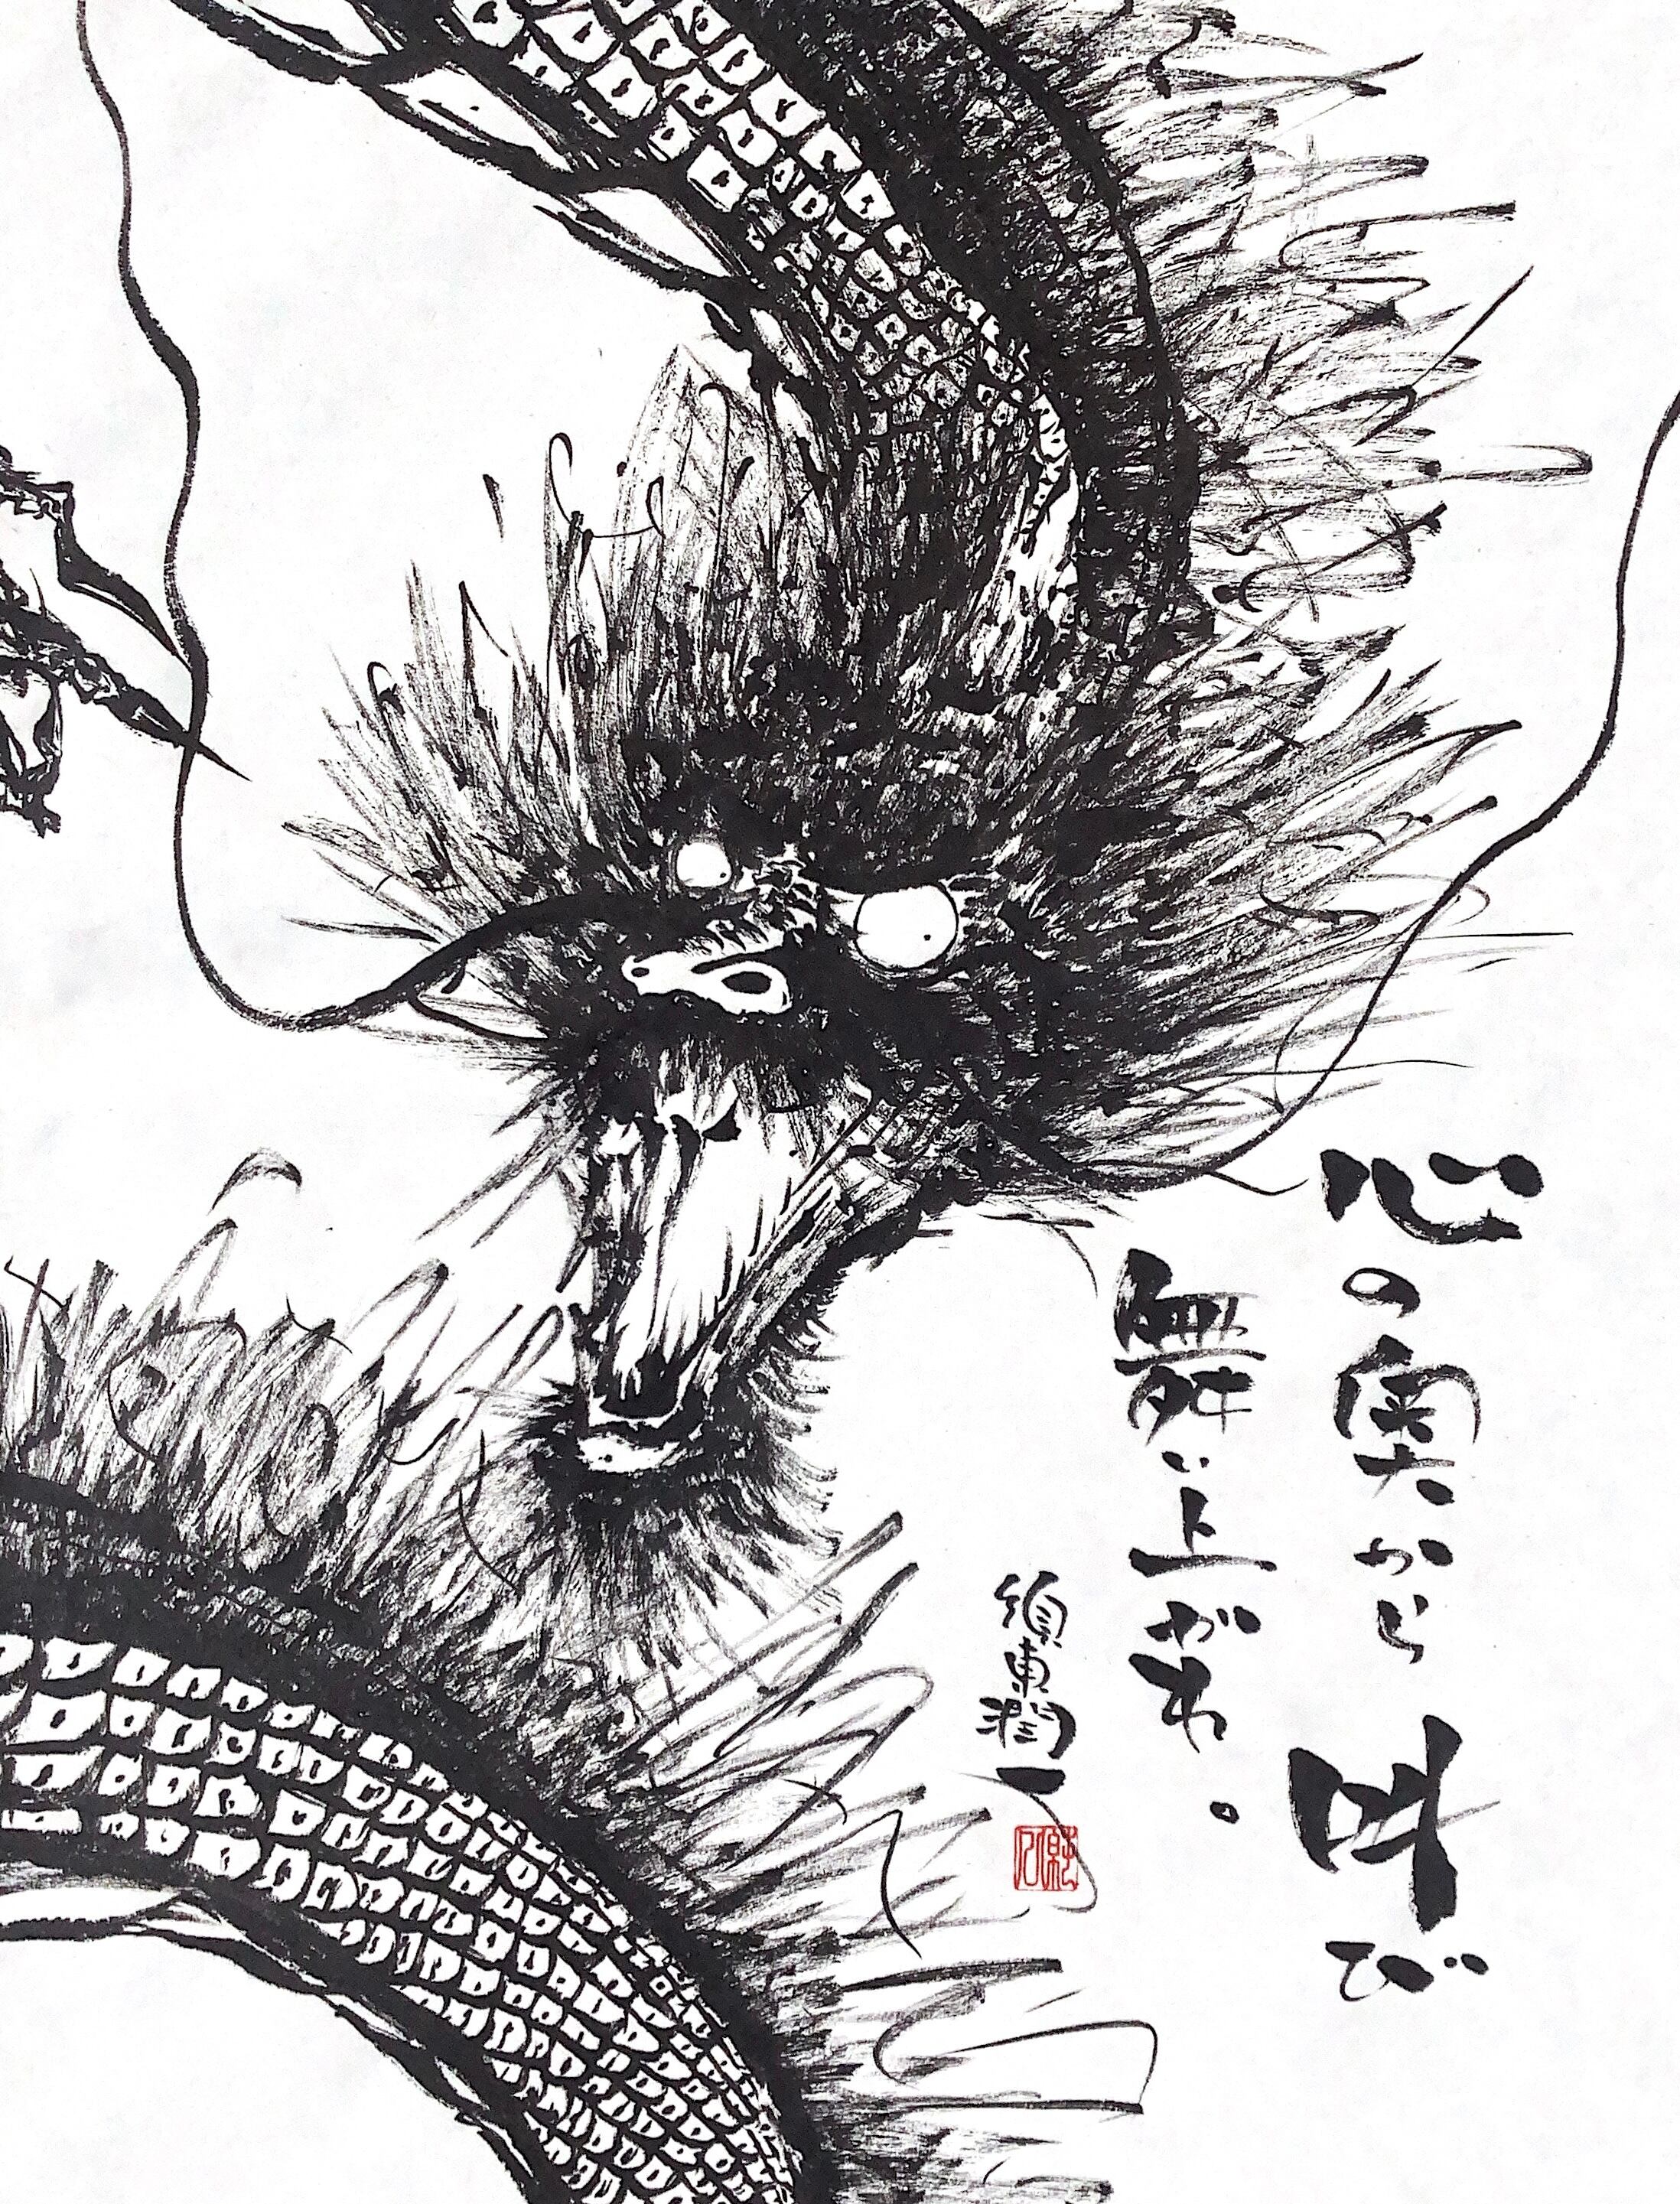 心の奥から叫び
舞い上がれ。
須東潤一